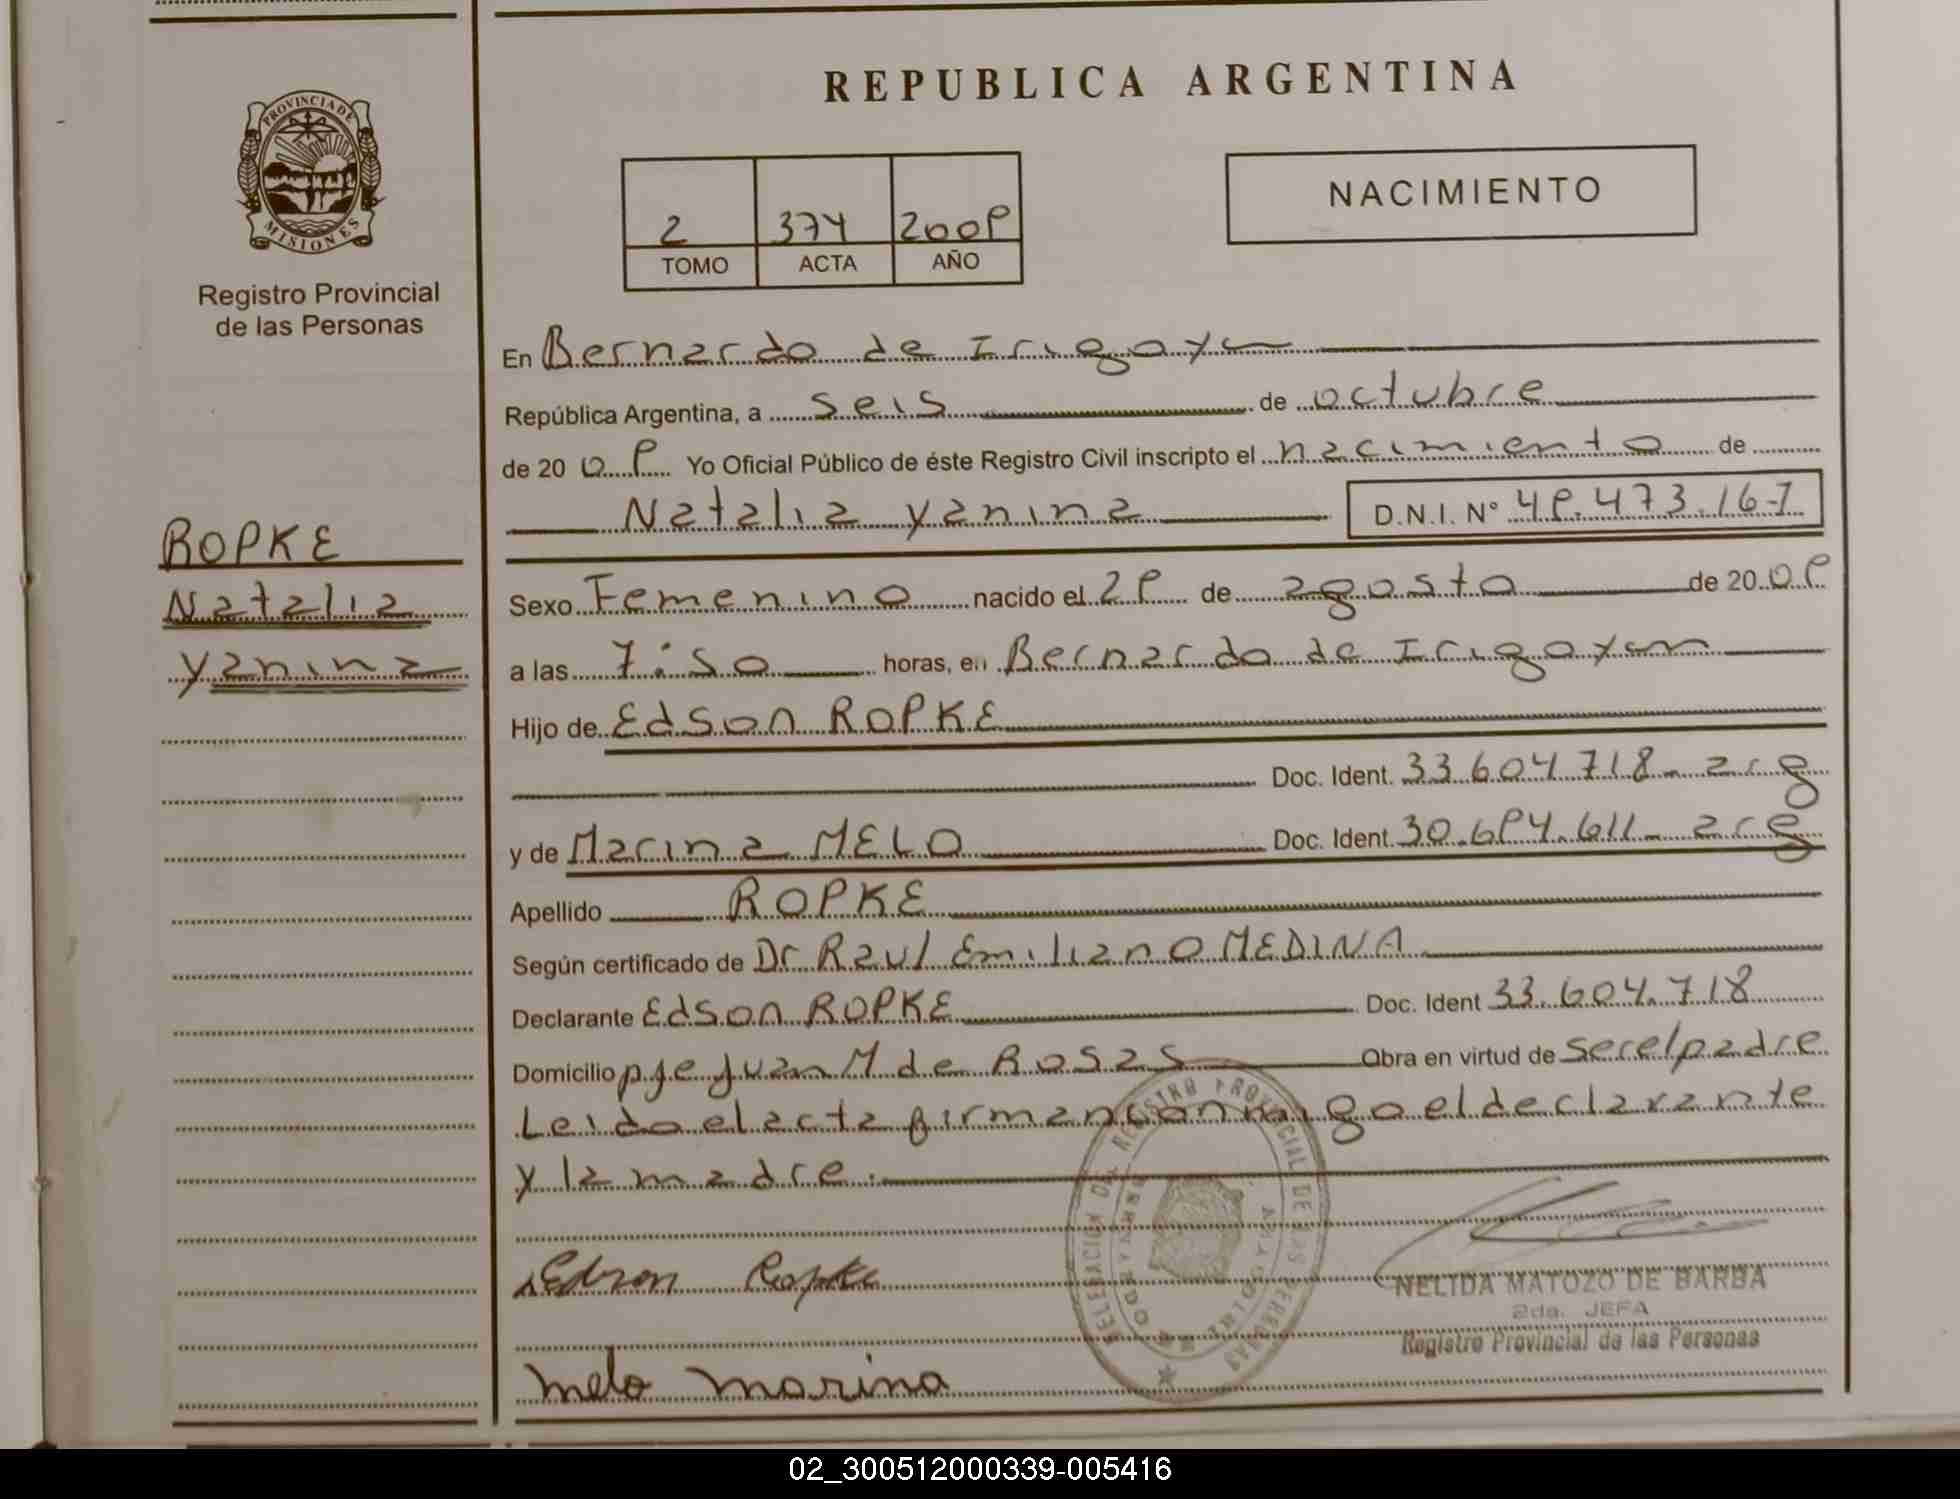 PROVINCIA DE
MISIONES
Registro Provincial
de las Personas
ROPKE
Natalia
Yanina
REPUBLICA ARGENTINA
2 374 2009
TOMO ACTA AÑO
NACIMIENTO
En Bernardo de Irigoyen
República Argentina, a seis de octubre
de 20 09 Yo Oficial Público de éste Registro Civil inscripto el nacimiento de
Natalia Yanina D.N.I. N° 49.473.167
Sexo Femenino nacido el 29 de agosto de 20 09
a las 7:50 horas, en Bernardo de Irigoyen
Hijo de Edson ROPKE
Doc. Ident. 33.604.718- arg
y de Marina MELO Doc. Ident. 30.694.611- arg
Apellido ROPKE
Según certificado de Dr Raul Emiliano MEDINA
Declarante Edson ROPKE Doc. Ident 33.604.718
Domicilio pje Juan M de Rosas Obra en virtud de ser el padre
Leido el acta firman conmigo el declarante
y la madre.
DELEGACION DEL REGISTRO PROVINCIAL DE LAS PERSONAS
Edson Ropke
NELIDA MATOZO DE BARBA
2da. JEFA
Registro Provincial de las Personas
Melo Marina
02_300512000339-005416